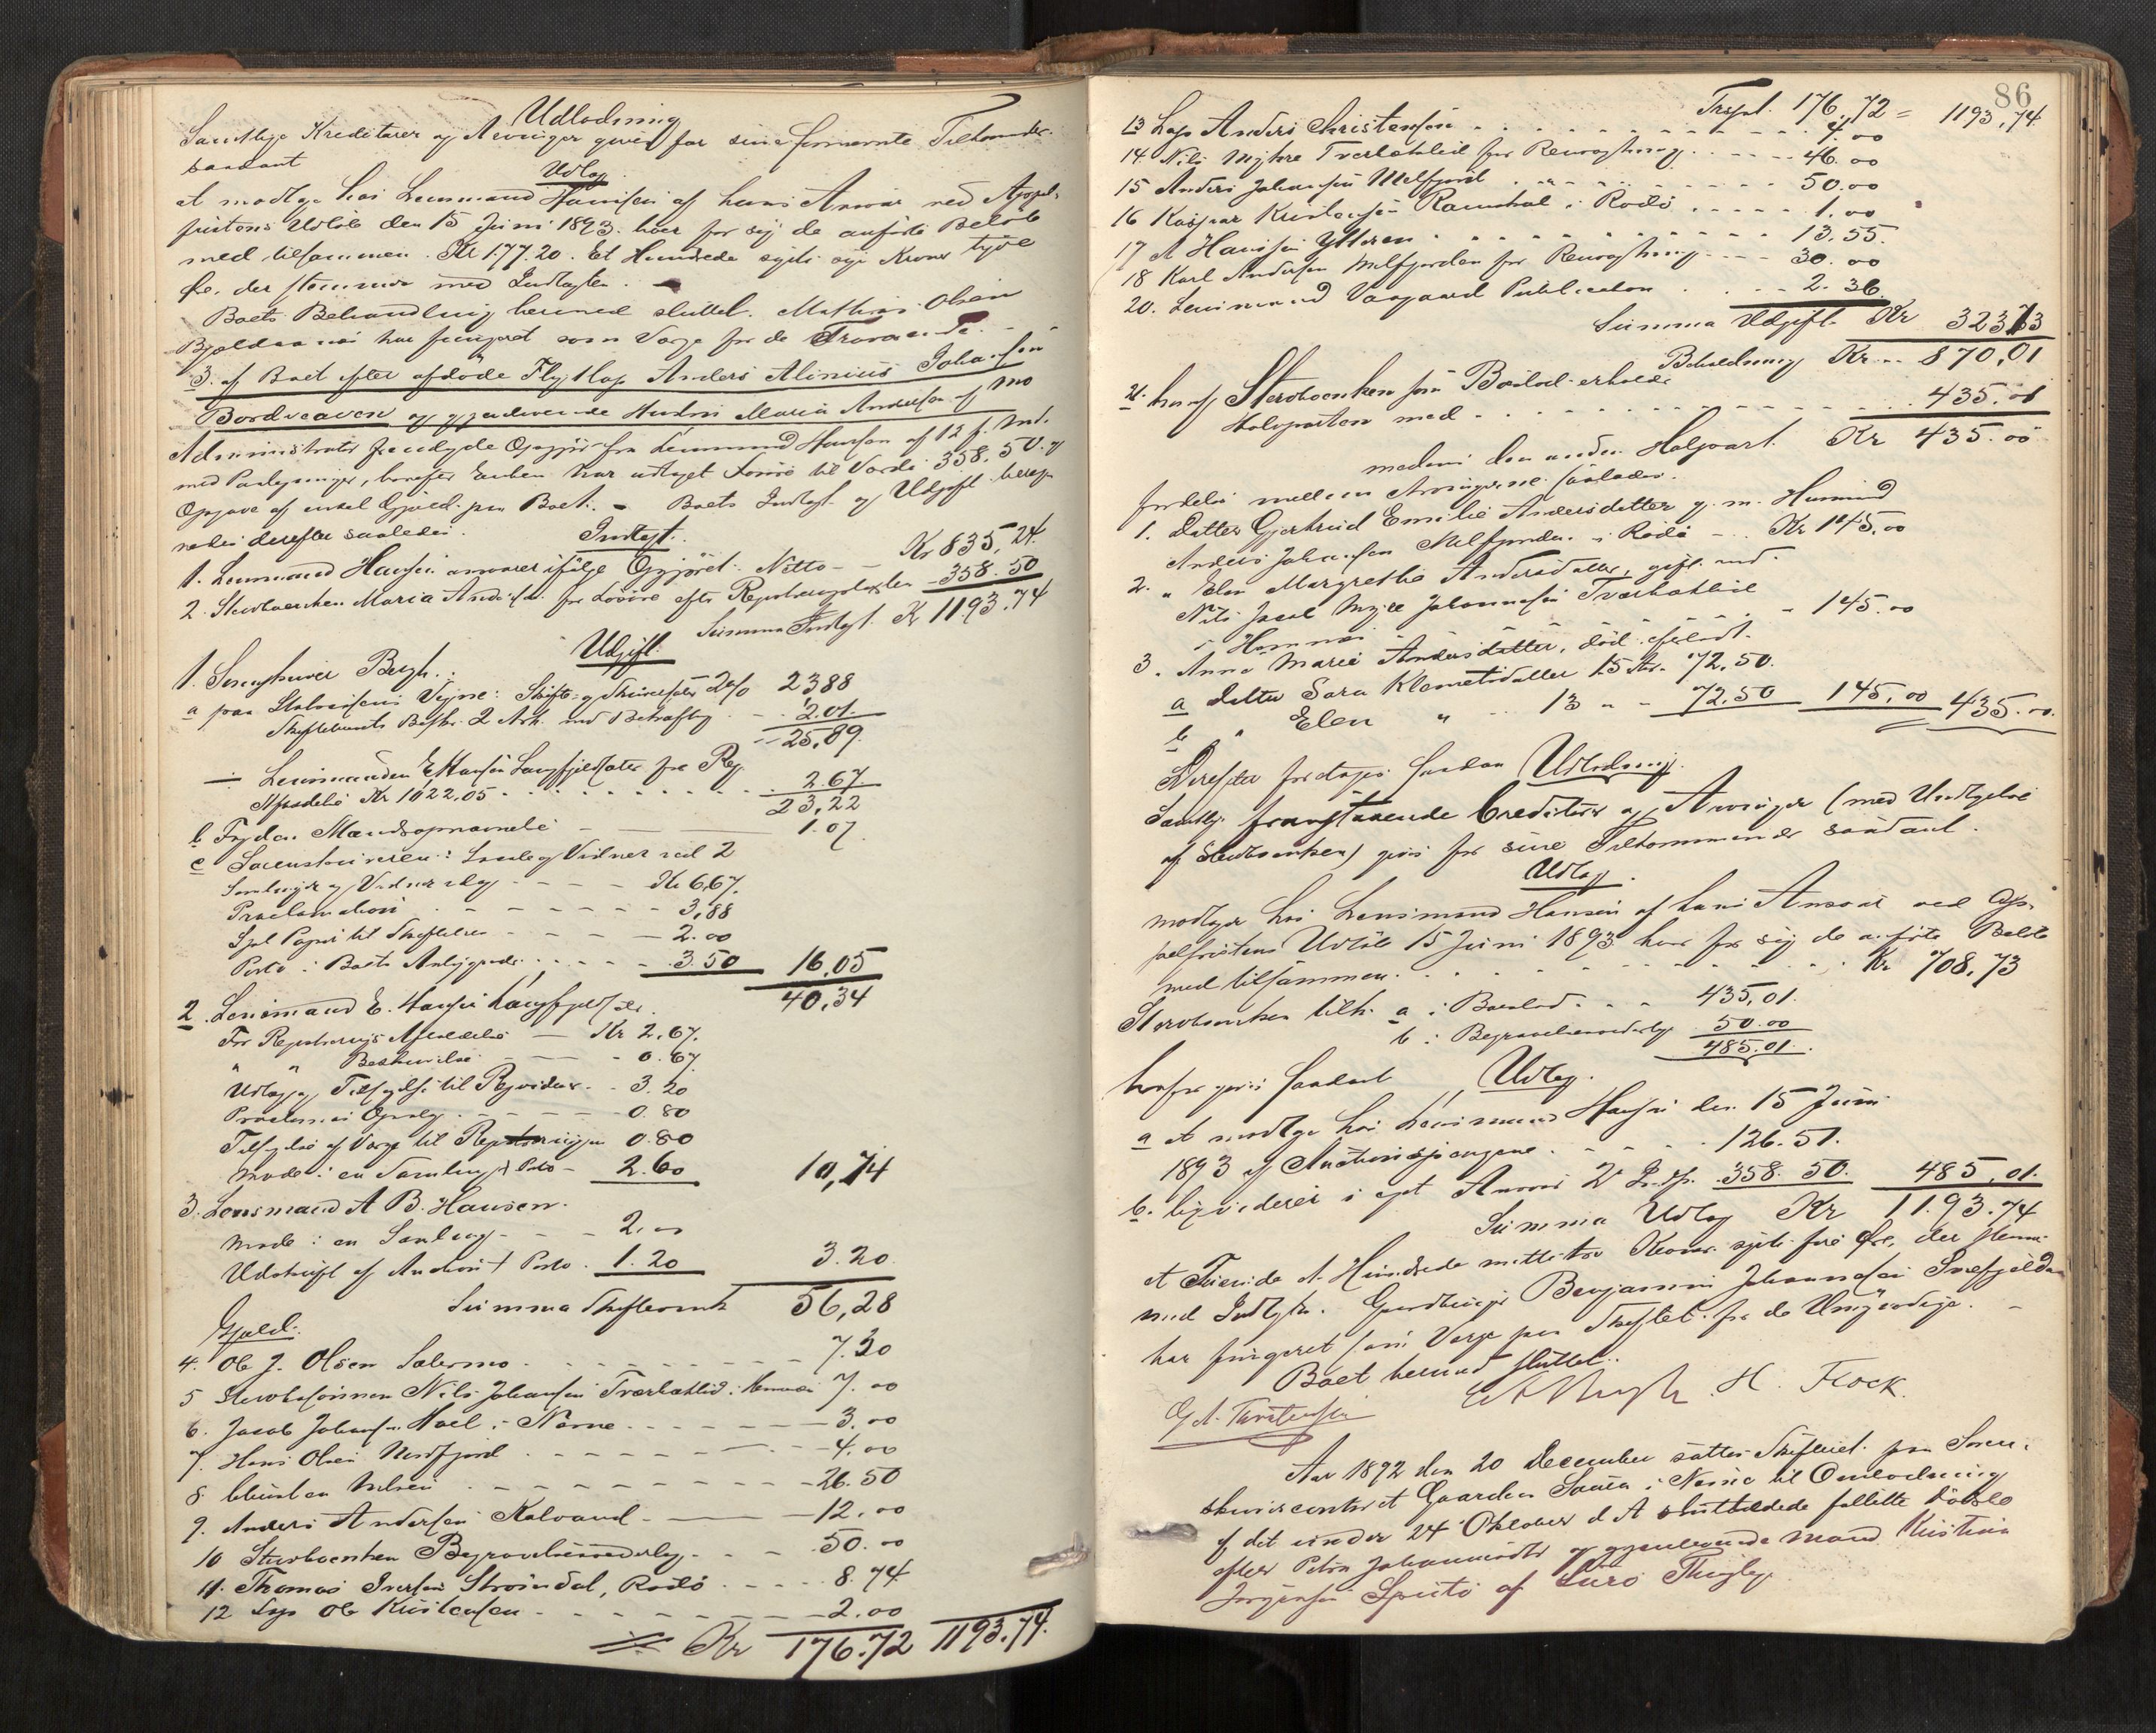 Udlodning
Samtlige Kreditorer og Arvinger gives for sine fornævnte Tilkommender
saadant
Udlæg
at modtage hos Lensmand Hansen af hans Ansvar ved Appel-
fristens Udløb den 15 Juni 1893. hver for sig de anførte Beløb
med tilsammen Kr 177.20. Et Hundrede sytti syv Kroner tyve
Øre, der stemmer med Indtægten.
Boets Behandling hermed sluttet. Mathias Olsen
har fungeret som Værge for de Fraværende. -
3. af Boet efter afdøde Flytlap Anders Alinius Johansen
Bordveaven og gjenlevende Hustru Maria Andersen af Mo
Administrator fremlagde Opgjør fra Lensmand Hansen af 12 f. Md.
med Paategninger, hvorefter Enken har udtaget Løsøre til Værdi 358.50. og
Opgave af enkel Gjæld paa Boet. - Boets Indtægt og Udgift bereg-
nedes derefter saaledes.
Indtægt.
1. Lensmand Hansen ansvarer ifølge Opgjøret Netto - - Kr 835,24.
2. Sterboenken Maria Andersen for Løsøre efter Registreringstaxten - 358.50
Summa Indtægt. Kr 1193.74
Udgift.
1. Sorenskriver Bergh.:
a paa Statscassens Vegne: Skifte- og Skriversalær 2% 2388
Skiftebrevets Beskr. 2 Ark. med Bekræftg - - 2.01.
- - 25,89.
÷ Lensmanden E Hansen Langfjeldsæter for Reg.
Afholdelse Kr 1022,05 - - - - - - - 2.67
23,22
b Fogden Mændsopnævnelse - 1.07
c Sorenskriveren: Samling Vidner ved 2
Samlinger og Vidnerslag - - - Kr 6,67.
Proclamation - - - - - - 3,88
Sgl. Papir til Skiftebrev - - - - 2.00
Porto i Boets Anliggende - - - - 3.50 16,05
40,34
2. Lensmand E. Hansen Langfjeldsæter.
For Registrerings Afholdelse - Kr 2,67.
" " Beskrivelse - - 0.67
Udlæg og Tilsigelse til Reqvidør - - 3.20
Proclamas Opslag - - - - 0.80
Tilsigelse af Værge til Registreringen 0.80
Møde i en Samling & Porto - 2.60 10,74
3. Lensmand A B. Hansen.
Møde i en Samling - - - 2.00
Udskrift af Auction & Porto - 1.20 3.20.
Summa Skifteomk 56,28
Gjæld.
4. Ole J. Olsen Salermo - - - - - - - 7.20
5 Sterbosønnen Nils Johansen Tværbaklid i Hemnæs 7.00
6. Jacob Johansen Hoel i Næsne - - - - - 3.00
7. Hans Olsen Nordfjord - - - - - - 4.00
8. Nilsen - - - - - - - 26.50
9. Anders Andersen Kalvand - - - 12.00
10 Sterboenken Begravelsesvederlag - - - 50.00
11. Thomas Iversen Strøindal, Rødø - - - - 8.74
12 Lap Ole Kristensen - - - - - - - 2.00
Kr 176.72 1193.74.
86
Trspt. 176,72 = 1193,74.
13 Lap Anders Christensen - - - - - - - - 4.00
14. Nils Mykre Tverbaklid for Renvogtning - - - - 46.00
15 Anders Johansen Melfjord - - - - - - - 50.00
16 Kaspar Kristensen Ramdal i Rødø - - - - 1.00
17 A Hansen Ytteren - - - - - - - - - 13.55.
18 Karl Andersen Melfjorden for Renvogtning - - - 30.00
20. Lensmand Vaagaard Publication - - - - 2.36
Summa Udgift Kr 323,73
Beholdning Kr - - 870,01
21. hvoraf Sterboenken sin Boeslod erholder
Halvparten med - - - - - - - - - - - - 435.01
medens den anden Halvpart Kr 435.00
fordeles mellem Arvingerne saaledes.
1. Datter Gjertrud Emilie Andersdatter g. m. Husmand
Anders Johansen Melfjorden i Rødø - - Kr 145.00
2. " Elen Margrethe Andersdatter, gift med
Nils Jacob Mykle Johannesen Tværbaklid
i Hemnæs - - - - - - - - 145.00
3. Anna Marie Andersdatter, død, efterladt
a Datter Sara Klemetsdatter 15 Aar 72.50.
b " Elen " - - 13 " - 72.50 145,00 435.00.
Derefter foretages saadan Udlodning.
Samtlige foranstaaende Creditorer og Arvinger (med Undtagelse
af Sterboenken) gives for sine Tilkommender saadant
Udlæg.
modtager hos Lensmand Hansen af hans Ansvar ved Ap-
pelfristens Udløb 15 Juni 1893 hver for sig de anførte Beløb
med tilsammen - - - - - - - - - - Kr 708,73
Sterboenken tilk. a i Boeslod - - - 435,01.
b i Begravelsesvederlag 50.00
485.01.
hvorfor gives saadant Udlæg.
a at modtage hos Lensmand Hansen den 15 Juni
1893 af Auctionspengene - - - - 126.51.
b. liqviderer i eget Ansvar 2 Indtp. 358.50. 485,01.
Summa Udlæg Kr 1193.74
et Tusende et Hundrede nitti tre Kroner sytti fire Øre, der stemmer
med Indtægten. Gaardbruger Benjamin Johannesen Snefjelda
har fungeret som Værge paa Skiftet for de Umyndige. -
Boet hermed sluttet.
G A. Torstensen H. Flock.
Aar 1892 den 20 December sattes Skifteret paa Soren-
skrivercontoret Gaarden Sauen i Næsne til Omlodning
af det under 24 Oktober d A sluttede fallitte Dødsbo
efter Petra Johannesdtr og gjenlevende Mand Kristian
Jørgensen Sprutø af Lurø Thinglag.